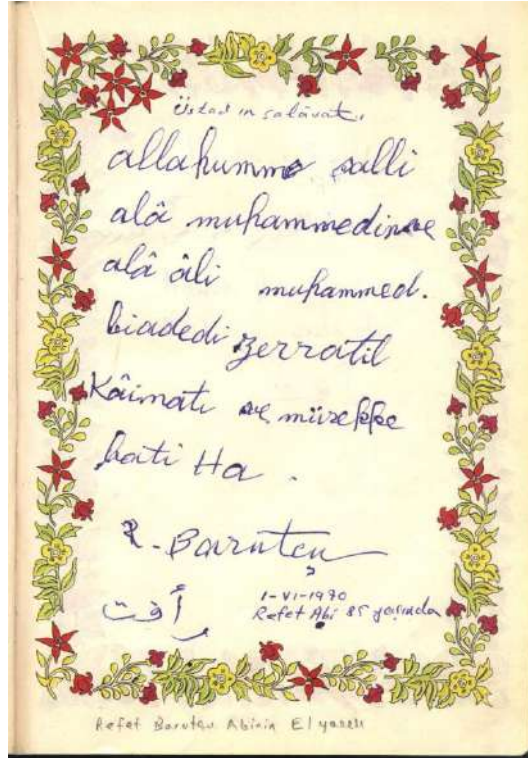 Üstadın salâvatı
allahumme salli
alâ muhammedin ve
alâ âli muhammed.
biadedi zerratil
Kâimatı ve mürekke
bati Ha .
R. Barutçu
رأفت
1-VI-1970
Refet Abi 85 yaşında
Refet Barutçu Abinin El yazısı